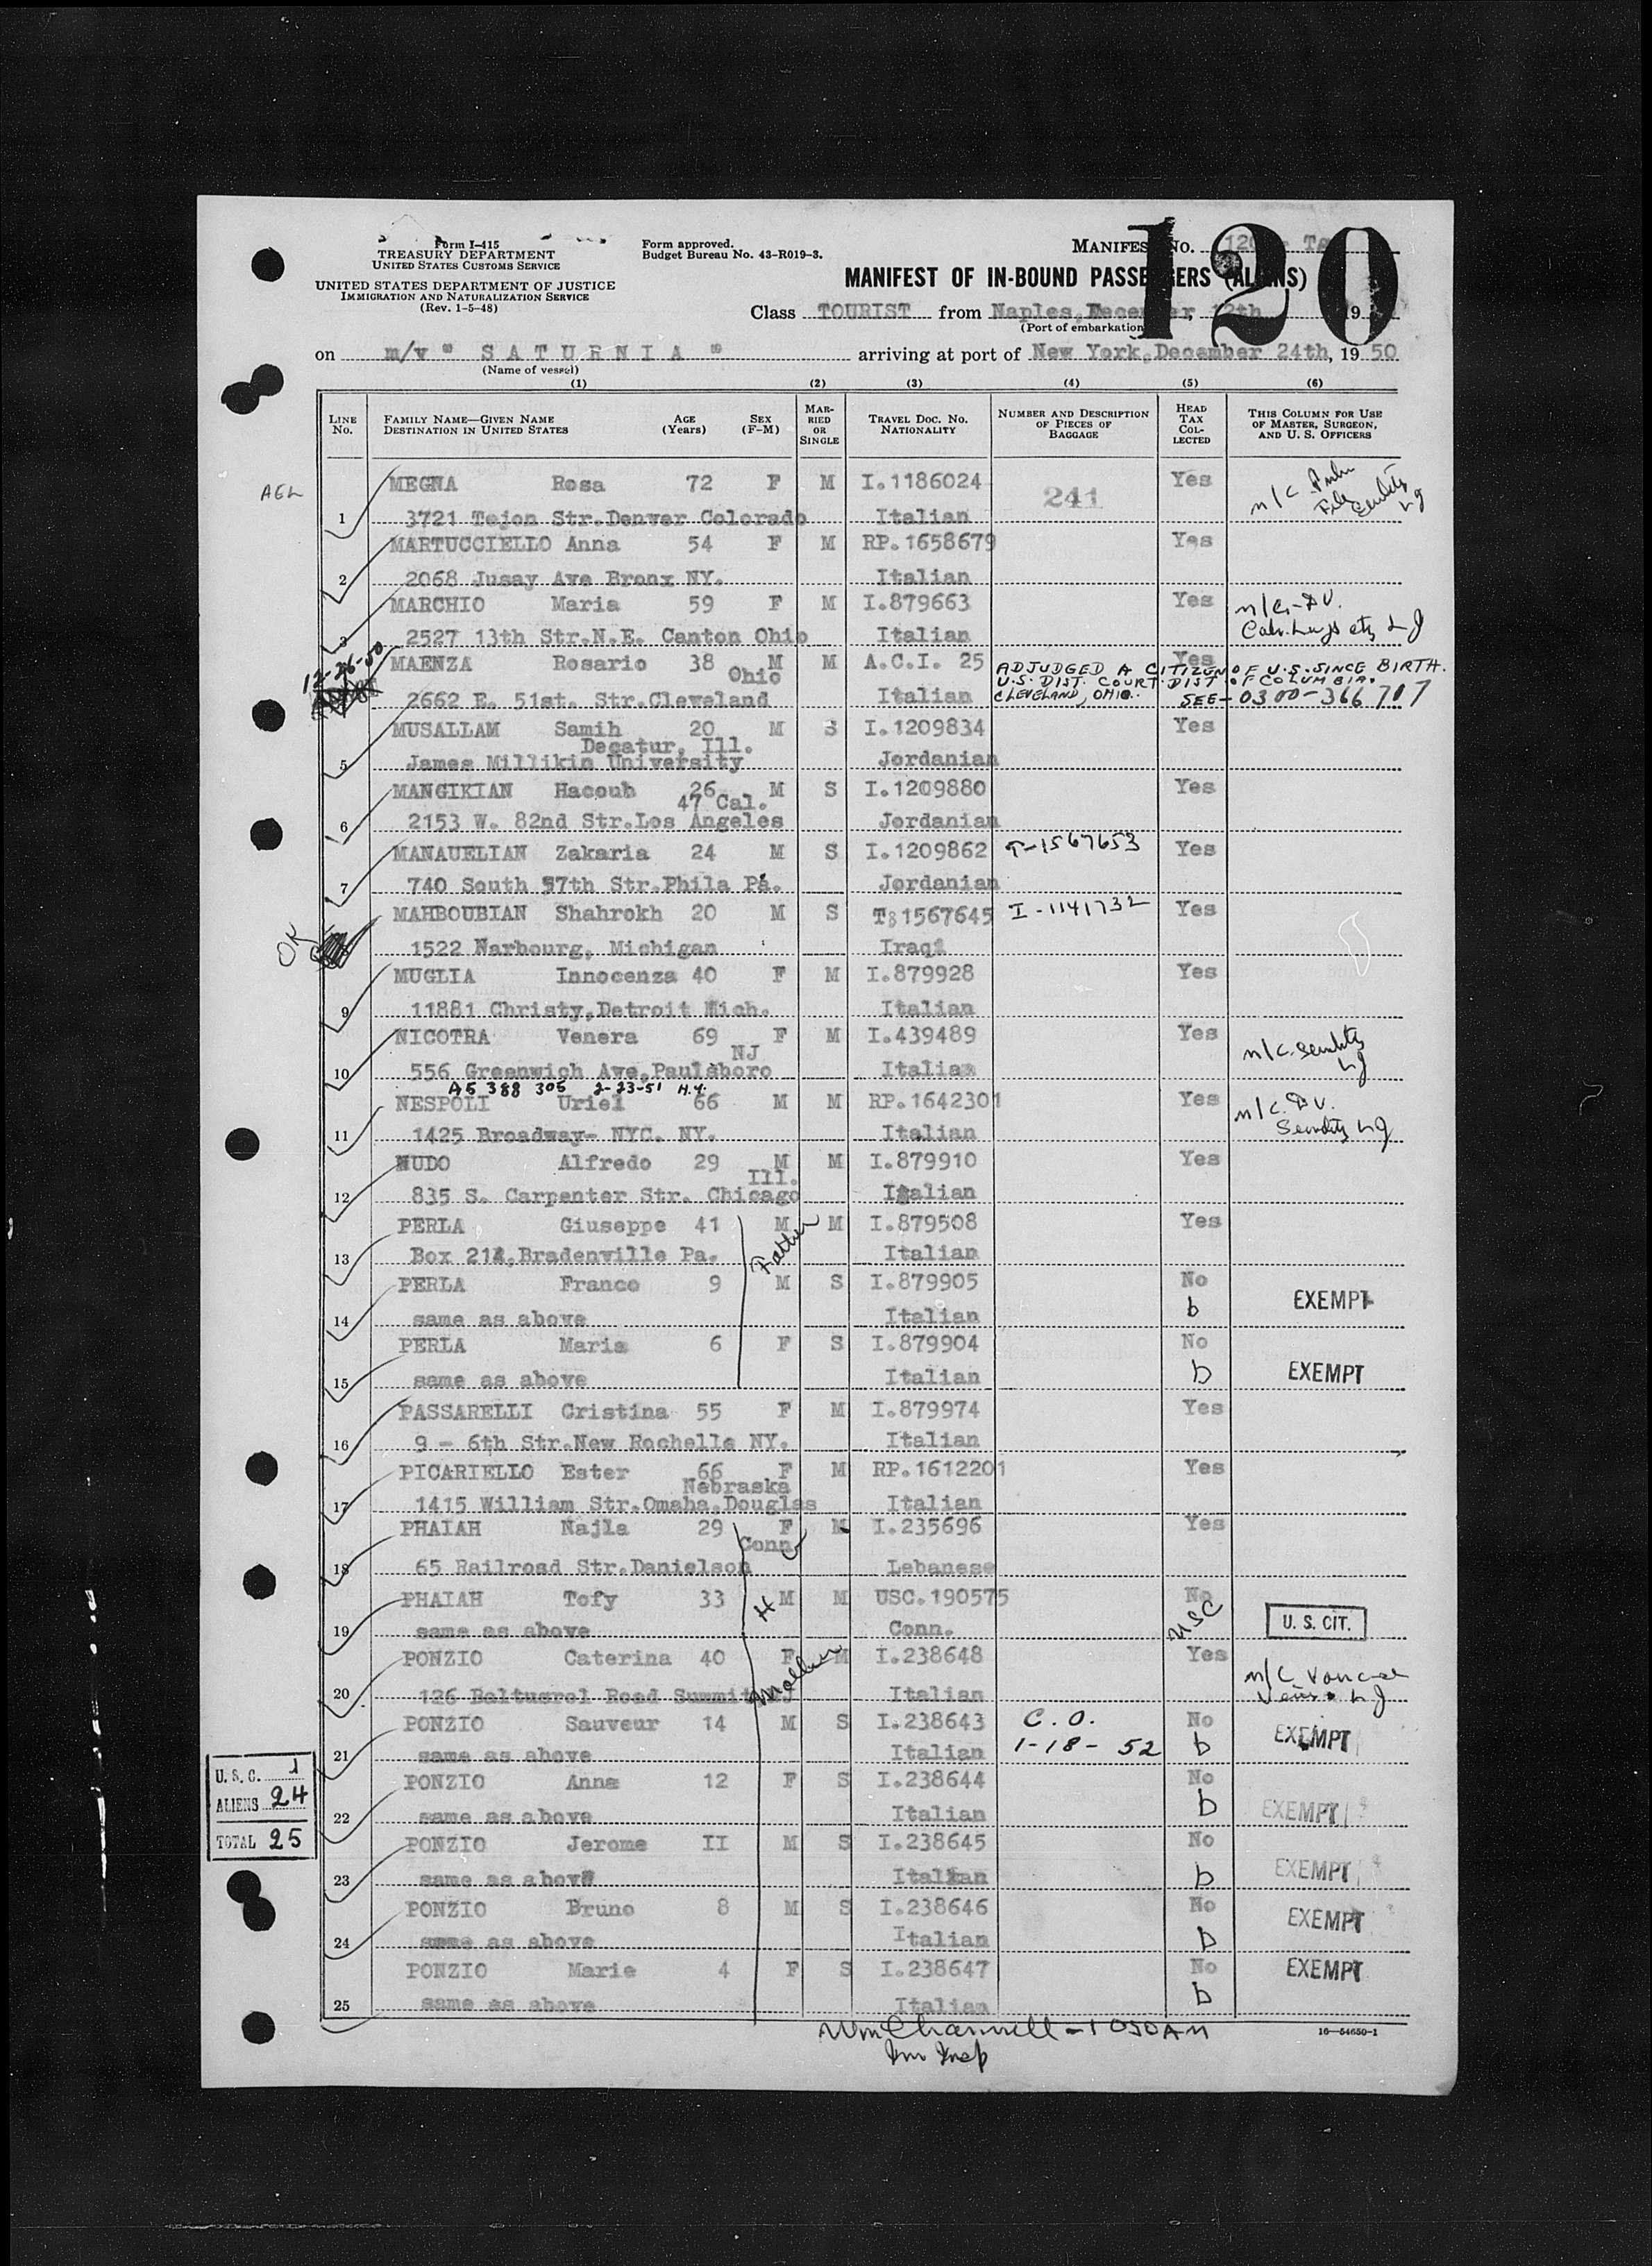 120
Form I-415
TREASURY DEPARTMENT
UNITED STATES CUSTOMS SERVICE
UNITED STATES DEPARTMENT OF JUSTICE
IMMIGRATION AND NATURALIZATION SERVICE
(Rev. 1-5-48)
Form approved.
Budget Bureau No. 43-R019-3.
MANIFEST NO. 120
MANIFEST OF IN-BOUND PASSENGERS (ALIENS)
Class TOURIST from Naples, December 12th, 19
(Port of embarkation)
on m/v " SATURNIA " arriving at port of New York, December 24th, 1950
(Name of vessel)
(1) (2) (3) (4) (5) (6)
LINE No. FAMILY NAME—GIVEN NAME DESTINATION IN UNITED STATES AGE (Years) SEX (F-M) MARRIED OR SINGLE TRAVEL DOC. NO. NATIONALITY NUMBER AND DESCRIPTION OF PIECES OF BAGGAGE HEAD TAX COLLECTED THIS COLUMN FOR USE OF MASTER, SURGEON, AND U. S. OFFICERS
MEGNA Rosa 72 F M I.1186024 241 Yes n/c
1 3721 Tejon Str.Denver Colorado Italian
MARTUCCIELLO Anna 54 F M RP.1658679 Yes
2 2068 Jusay Ave Bronx NY. Italian
MARCHIO Maria 59 F M I.879663 Yes
3 2527 13th Str.N.E. Canton Ohio Italian
12-26-50
MAENZA Rosario 38 M M A.C.I. 25 Yes
Ohio
2662 E. 51st. Str.Cleveland Italian
ADJUDGED A CITIZEN OF U.S. SINCE BIRTH.
U.S. DIST. COURT. DIST. OF COLUMBIA.
CLEVELAND, OHIO. SEE- 0300-366717
MUSALLAM Samih 20 M S I.1209834 Yes
Decatur, Ill.
5 James Millikin University Jordanian
MANGIKIAN Hacoub 26 M S I.1209880 Yes
47 Cal.
6 2153 W. 82nd Str.Los Angeles Jordanian
MANAUELIAN Zakaria 24 M S I.1209862 T-1567653 Yes
7 740 South 57th Str.Phila Pa. Jordanian
OK
MAHBOUBIAN Shahrokh 20 M S T:1567645 I-1141732 Yes
1522 Narbourg, Michigan Iraqi
MUGLIA Innocenza 40 F M I.879928 Yes
9 11881 Christy,Detroit Mich. Italian
NICOTRA Venera 69 F M I.439489 Yes
NJ
10 556 Greenwich Ave,Paulsboro Italian
A5 388 305 2-23-51 H.Y.
NESPOLI Uriel 66 M M RP.1642301 Yes
11 1425 Broadway- NYC. NY. Italian
NUDO Alfredo 29 M M I.879910 Yes
Ill.
12 835 S. Carpenter Str. Chicago Italian
PERLA Giuseppe 41 Father M M I.879508 Yes
13 Box 214,Bradenville Pa. Italian
PERLA Franco 9 M S I.879905 No
14 same as above Italian b EXEMPT
PERLA Maria 6 F S I.879904 No
15 same as above Italian b EXEMPT
PASSARELLI Cristina 55 F M I.879974 Yes
16 9 - 6th Str.New Rochelle NY. Italian
PICARIELLO Ester 66 F M RP.1612201 Yes
Nebraska
17 1415 William Str.Omaha,Douglas Italian
PHAIAH Najla 29 F M I.235696 Yes
Conn
18 65 Railroad Str.Danielson Lebanese
PHAIAH Tofy 33 H M M USC.190575 No
19 same as above Conn. USC U. S. CIT.
PONZIO Caterina 40 Mother F M I.238648 Yes
20 126 Baltusrol Road Summit NJ Italian
PONZIO Sauveur 14 M S I.238643 C.O. No
21 same as above Italian 1-18-52 b EXEMPT
PONZIO Anna 12 F S I.238644 No
22 same as above Italian b EXEMPT
PONZIO Jerome II M S I.238645 No
23 same as above Italian b EXEMPT
PONZIO Bruno 8 M S I.238646 No
24 same as above Italian b EXEMPT
PONZIO Marie 4 F S I.238647 No
25 same as above Italian b EXEMPT
U.S.C. 1
ALIENS 24
TOTAL 25
Wm Channell - 1030AM
Imm Insp
16—54650-1